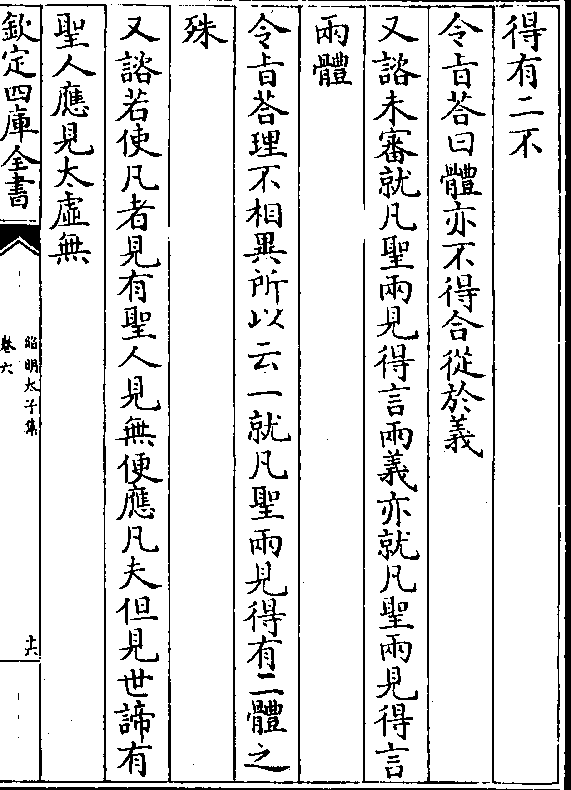 得有二不
令㫖答曰體亦不得合從於義
又諮未審就凡聖兩見得言兩義亦就凡聖兩見得言
兩體
令㫖荅理不相異所以云一就凡聖兩見得有二體之
殊
又諮若使凡者見有聖人見無便應凡夫但見世諦有
聖人應見太虛無
欽定四庫全書
昭明太子集
卷六
十六